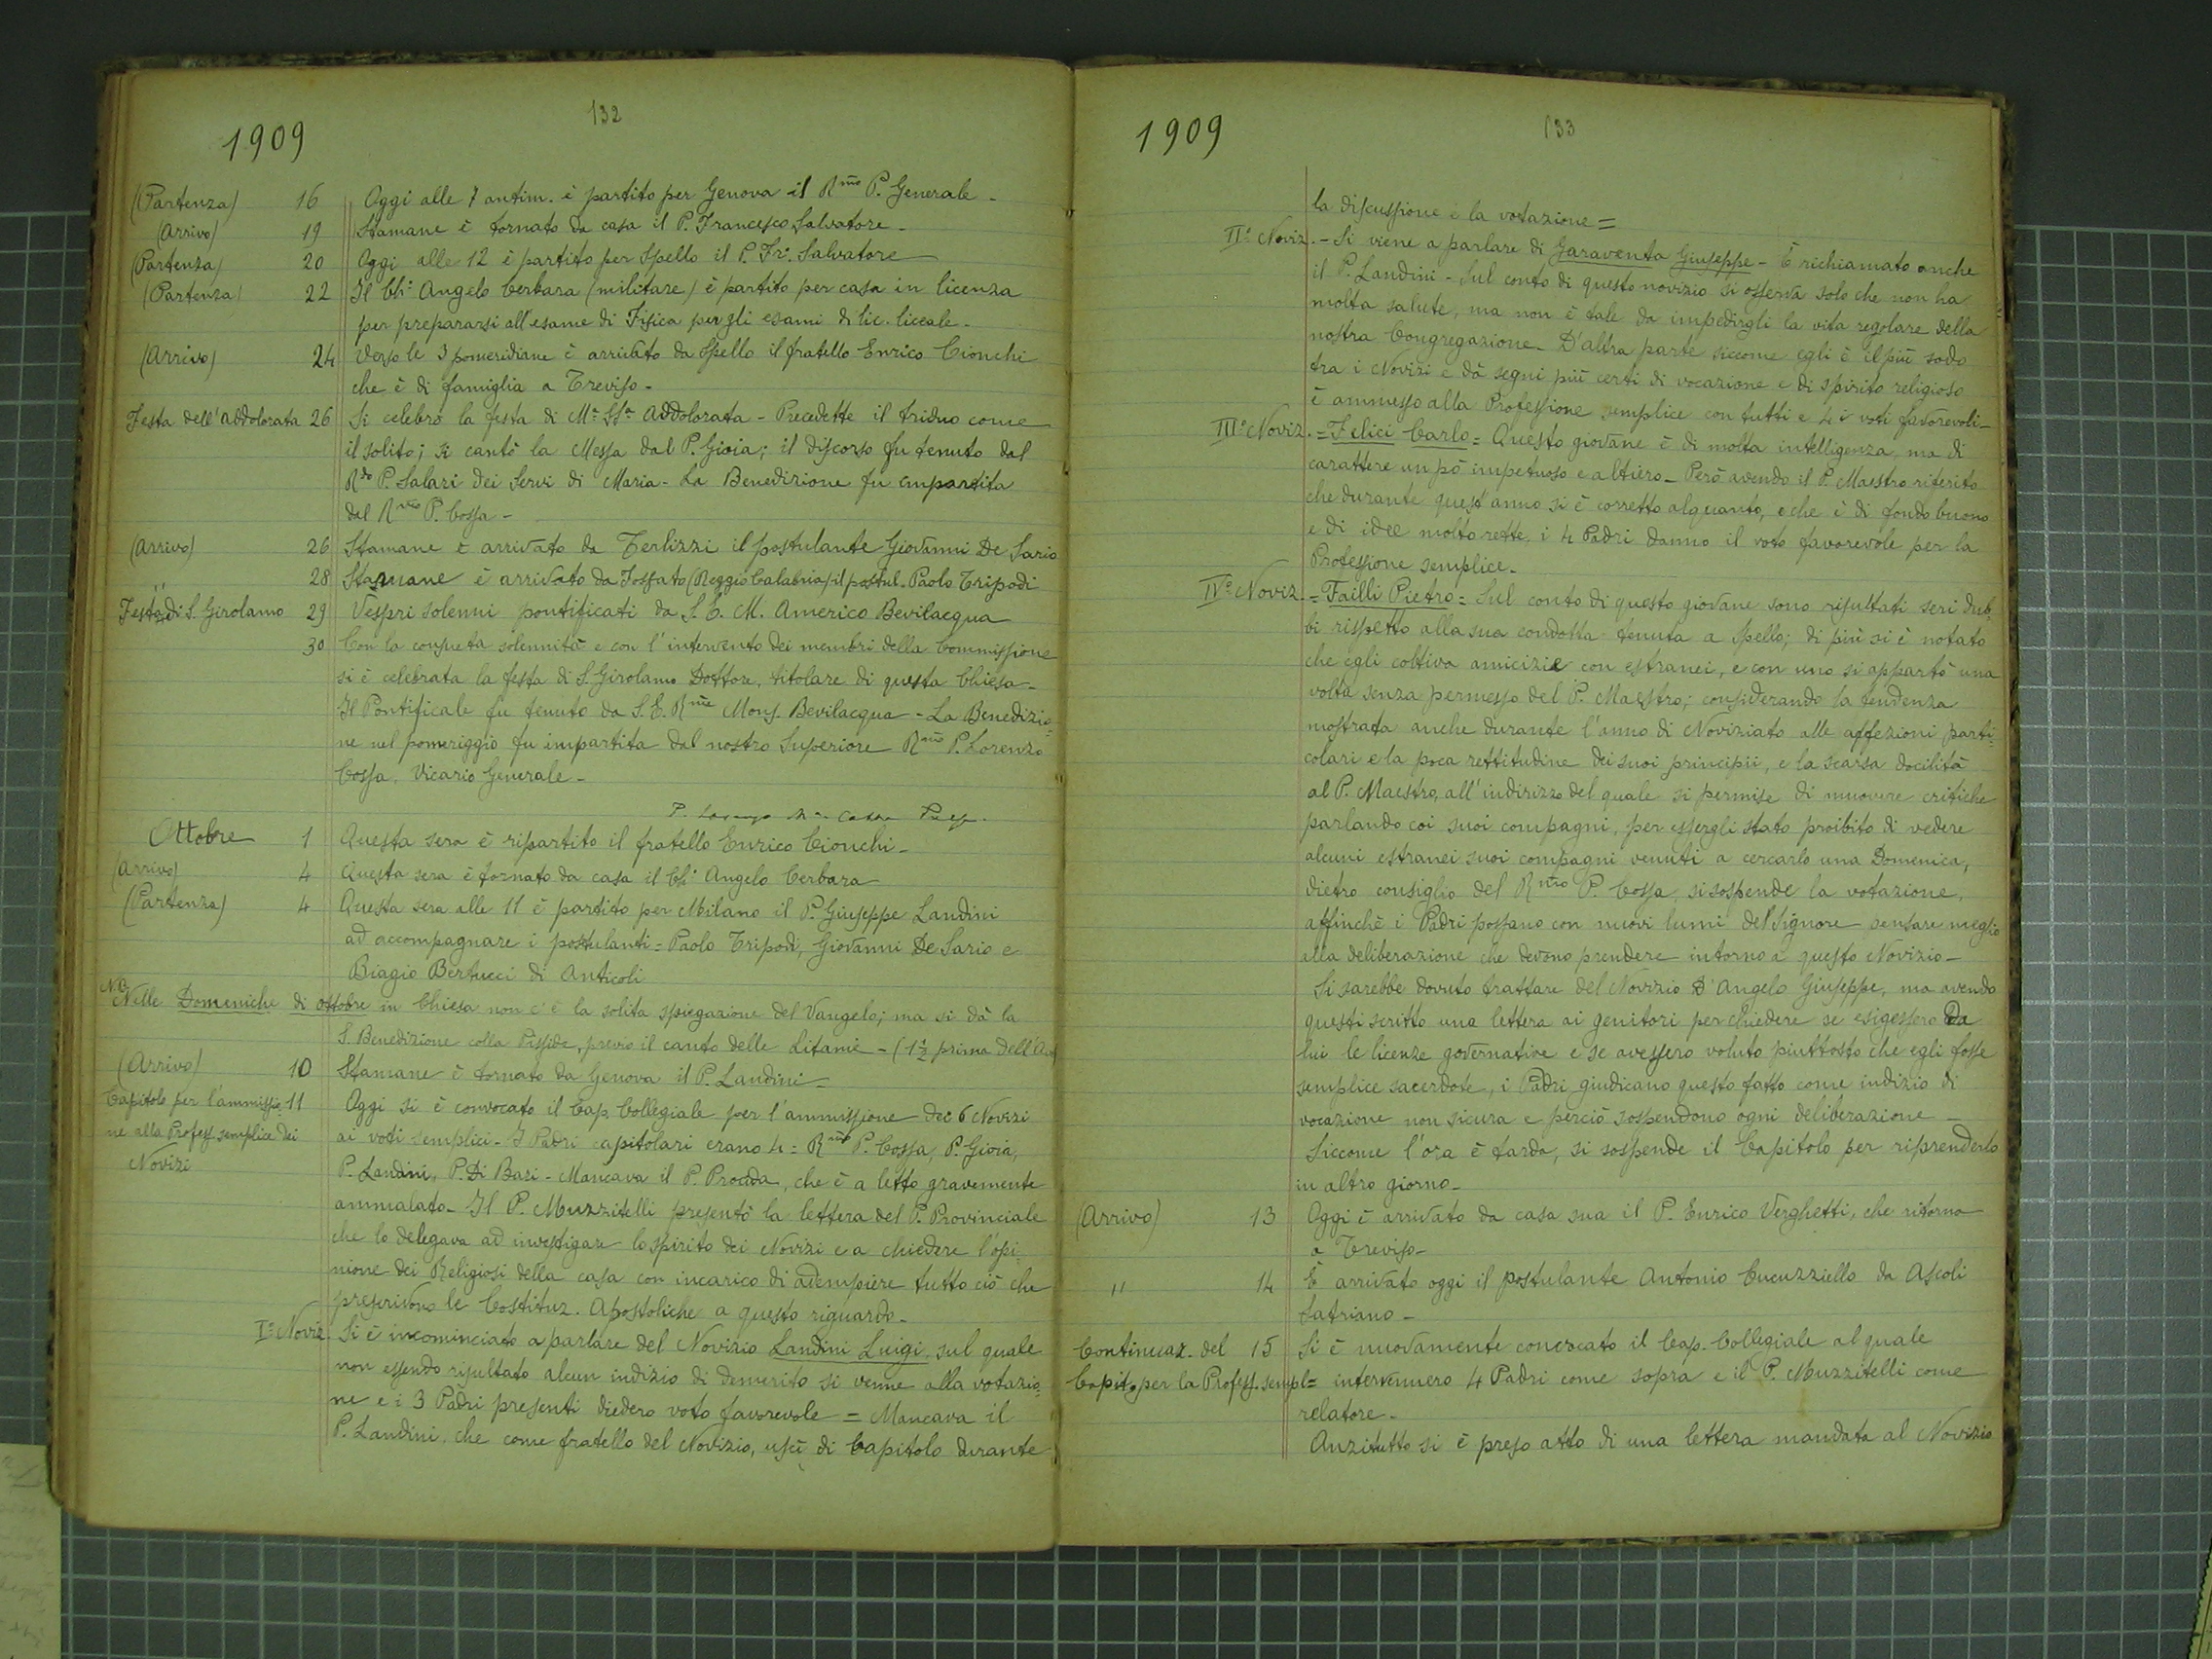 132
1909
(Partenza) 16 Oggi alle 7 antim. è partito per Genova il R.mo P. Generale -
(Arrivo) 19 Stamane è tornato da casa il P. Francesco Salvatore -
(Partenza) 20 Oggi alle 12 è partito per Spello il P. Fr. Salvatore
(Partenza) 22 Il Ch.° Angelo Cerbara (militare) è partito per casa in licenza
per prepararsi all'esame di Fisica per gli esami di lic. liceale -
(Arrivo) 24 Verso le 3 pomeridiane è arrivato da Spello il fratello Enrico Cionchi
che è di famiglia a Treviso -
Festa dell'Addolorata 26 Si celebrò la festa di M.a SS.a Addolorata - Precedette il triduo come
il solito; si cantò la Messa dal P. Gioia; il discorso fu tenuto dal
R.do P. Salari dei Servi di Maria - La Benedizione fu impartita
dal R.mo P. Cossa -
(Arrivo) 26 Stamane è arrivato da Terlizzi il postulante Giovanni De Sario
" 28 Stamane è arrivato da Fossato (Reggio Calabria) il postul. Paolo Tripodi
Festa di S. Girolamo 29 Vespri solenni pontificati da S. E. M. Americo Bevilacqua
30 Con la consueta solennità e con l'intervento dei membri della Commissione
si è celebrata la festa di S. Girolamo Dottore, titolare di questa Chiesa -
Il Pontificale fu tenuto da S. E. R.ma Mons. Bevilacqua - La Benedizio=
ne nel pomeriggio fu impartita dal nostro Superiore R.mo P. Lorenzo
Cossa, Vicario Generale -
P. Lorenzo M. Cossa Prep.
Ottobre 1 Questa sera è ripartito il fratello Enrico Cionchi -
(Arrivo) 4 Questa sera è tornato da casa il Ch.° Angelo Cerbara
(Partenza) 4 Questa sera alle 11 è partito per Milano il P. Giuseppe Landini
ad accompagnare i postulanti = Paolo Tripodi, Giovanni De Sario e
Biagio Bertucci di Anticoli
NB Nelle Domeniche di Ottobre in Chiesa non c'è la solita spiegazione del Vangelo; ma si dà la
S. Benedizione colla Pisside, previo il canto delle Litanie - (1 1/2 prima dell'Ave
(Arrivo) 10 Stamane è tornato da Genova il P. Landini -
Capitolo per l'ammissio 11 Oggi si è convocato il Cap. Collegiale per l'ammissione dei 6 Novizi
ne alla Profess. semplice dei ai voti semplici - I Padri capitolari erano 4 = R.mo P. Cossa, P. Gioia,
Novizi P. Landini, P. Di Bari - Mancava il P. Procida, che è a letto gravemente
ammalato - Il P. Muzzitelli presentò la lettera del P. Provinciale
che lo delegava ad investigare lo spirito dei Novizi e a chiedere l'opi=
nione dei Religiosi della casa con incarico di adempiere tutto ciò che
prescrivono le Costituz. Apostoliche a questo riguardo -
I° Noviz. Si è incominciato a parlare del Novizio Landini Luigi, sul quale
non essendo risultato alcun indizio di demerito si venne alla votazio=
ne e i 3 Padri presenti diedero voto favorevole = Mancava il
P. Landini che come fratello del Novizio, uscì di Capitolo durante
133
1909
la discussione e la votazione =
II° Noviz. - Si viene a parlare di Garaventa Giuseppe - È richiamato anche
il P. Landini - Sul conto di questo novizio si osserva solo che non ha
molta salute, ma non è tale da impedirgli la vita regolare della
nostra Congregazione - D'altra parte siccome egli è il più sodo
tra i Novizi e dà segni più certi di vocazione e di spirito religioso
è ammesso alla Professione semplice con tutti e 4 i voti favorevoli -
III° Noviz. = Felici Carlo = Questo giovane è di molta intelligenza, ma di
carattere un pò impetuoso e altiero - Però avendo il P. Maestro riferito
che durante quest'anno si è corretto alquanto, e che è di fondo buono
e di idee molto rette, i 4 Padri danno il voto favorevole per la
Professione semplice -
IV° Noviz. = Failli Pietro = Sul conto di questo giovane sono risultati seri dub=
bi rispetto alla sua condotta tenuta a Spello; di più si è notato
che egli coltiva amicizie con estranei, e con uno si appartò una
volta senza permesso del P. Maestro; considerando la tendenza
mostrata anche durante l'anno di Noviziato alle affezioni parti=
colari e la poca rettitudine dei suoi principii, e la scarsa docilità
al P. Maestro, all'indirizzo del quale si permise di muovere critiche
parlando coi suoi compagni, per essergli stato proibito di vedere
alcuni estranei suoi compagni venuti a cercarlo una Domenica,
dietro consiglio del R.mo P. Cossa, si sospende la votazione,
affinchè i Padri possano con nuovi lumi del Signore pensare meglio
alla deliberazione che devono prendere intorno a questo Novizio -
Si sarebbe dovuto trattare del Novizio D'Angelo Giuseppe, ma avendo
questi scritto una lettera ai genitori per chiedere se esigessero da
lui le licenze governative e se avessero voluto piuttosto che egli fosse
semplice sacerdote, i Padri giudicano questo fatto come indizio di
vocazione non sicura e perciò sospendono ogni deliberazione -
Siccome l'ora è tarda, si sospende il Capitolo per riprenderlo
in altro giorno -
(Arrivo) 13 Oggi è arrivato da casa sua il P. Enrico Verghetti, che ritorna
a Treviso -
" 14 È arrivato oggi il postulante Antonio Cucuzziello da Ascoli
Satriano -
Continuaz. del 15 Si è nuovamente convocato il Cap. Collegiale al quale
Capit. per la Profess. sempl = intervennero 4 Padri come sopra e il P. Muzzitelli come
relatore -
Anzitutto si è preso atto di una lettera mandata al Novizio